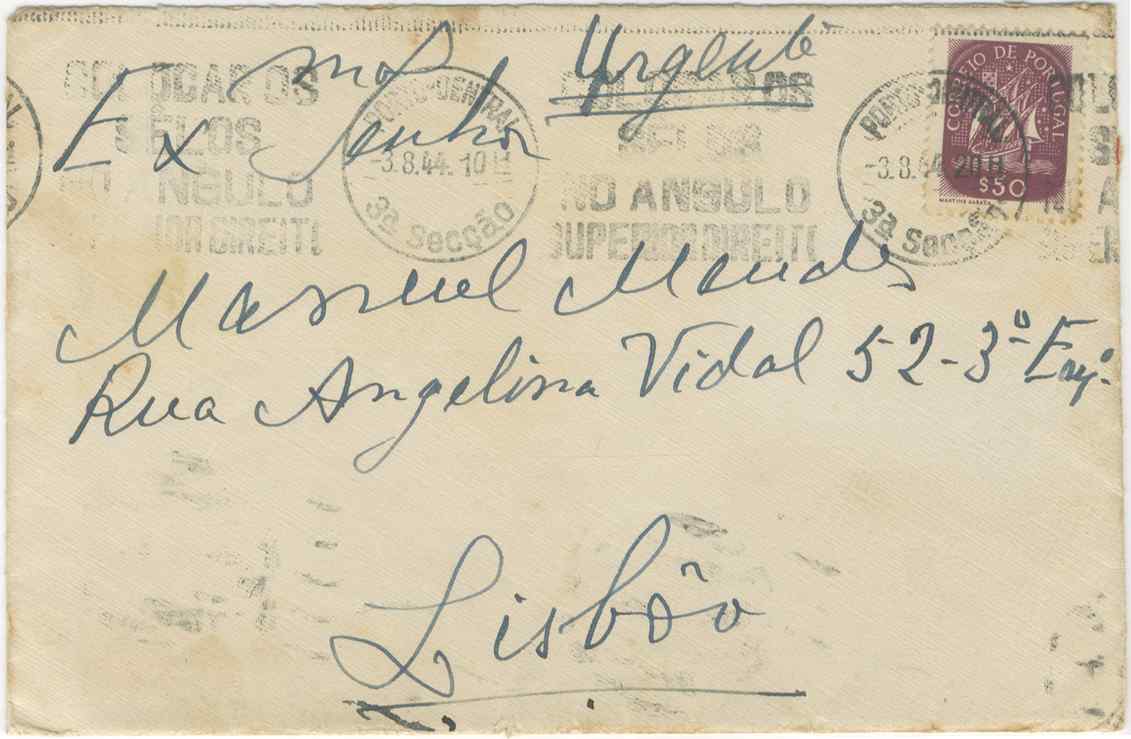 Urgente
Exmo Senhor
Manuel Mendes
Rua Angelina Vidal 52-3º Esq.
Lisbôa
COLOCAR OS
SELOS
NO ANGULO
SUPERIOR DIREITO
PORTO-CENTRAL
-3.8.44.10H
3ª Secção
COLOCAR OS
SELOS
NO ANGULO
SUPERIOR DIREITO
PORTO-CENTRAL
-3.8.44 20H
3ª Secção
CORREIO DE PORTUGAL
$50
MARTINS BARATA